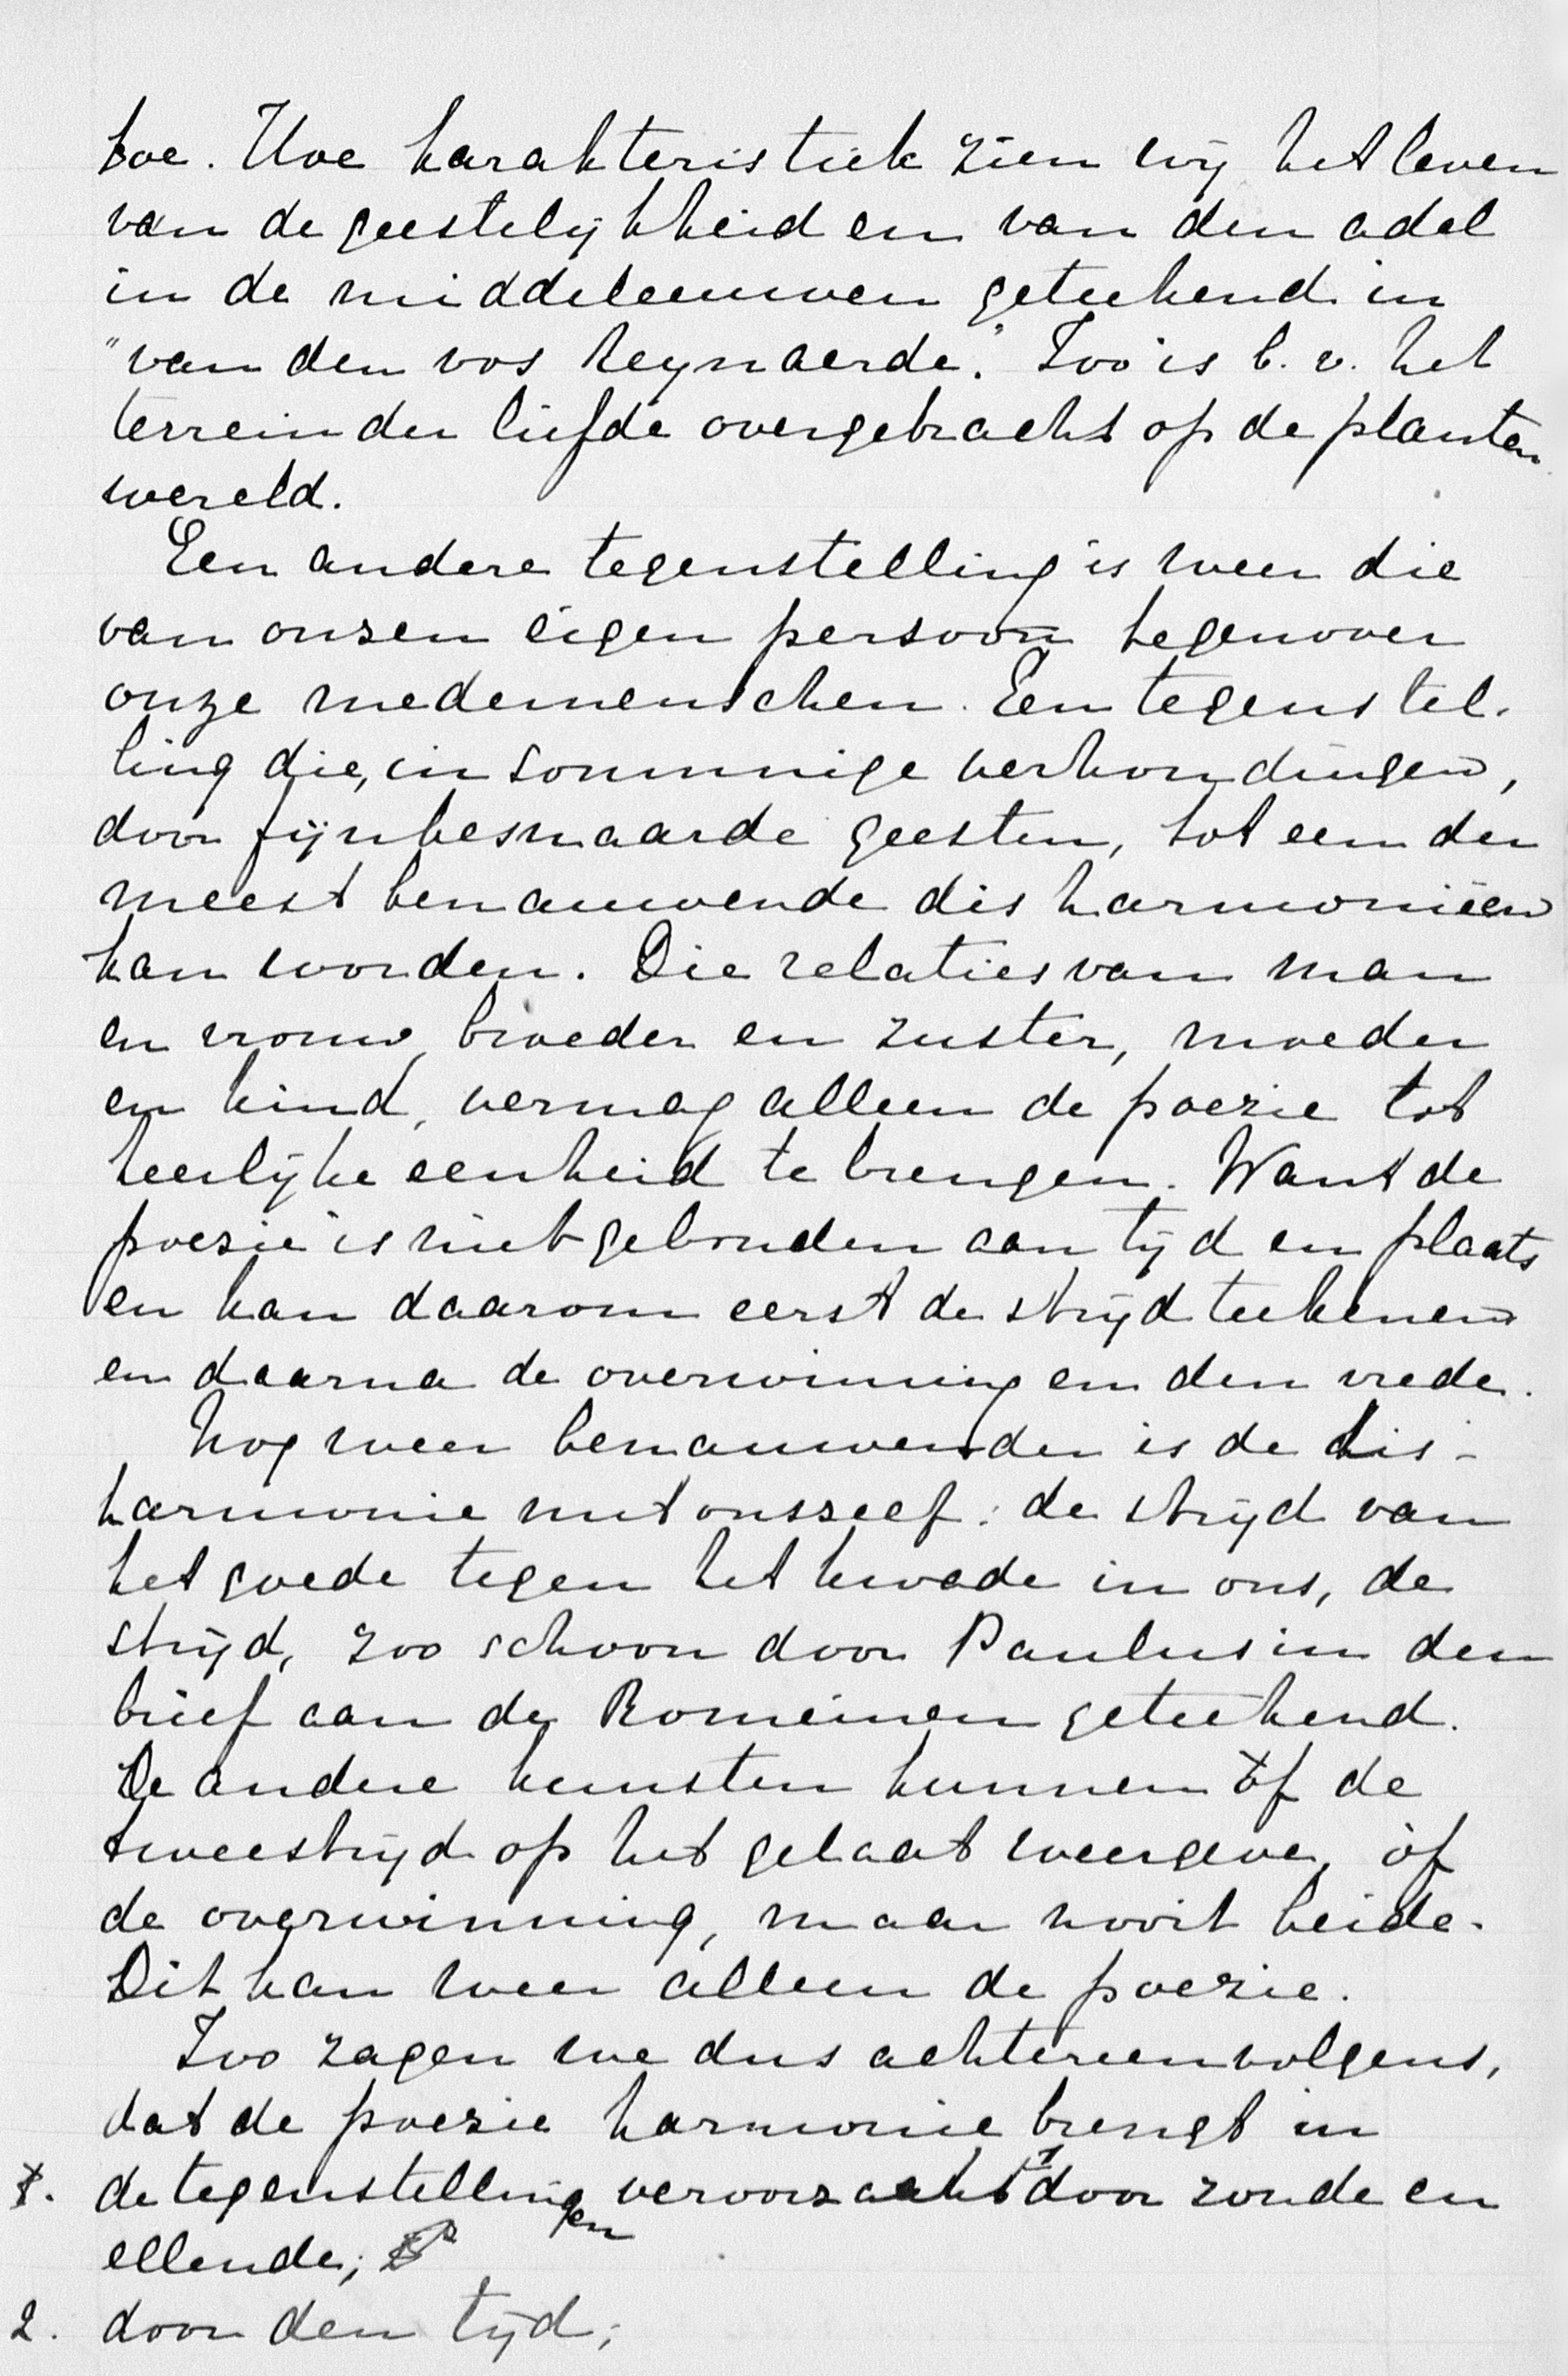 toe. Hoe karakteristiek zien wij het leven
van de geestelijkheid en van den adel
in de middeleeuwen geteekend in
"van den vos Reynaerde." Zoo is b.v. het
terrein der liefde overgebracht op de planten
wereld.
Een andere tegenstelling is weer die
van onzen eigen persoon tegenover
onze medemenschen. Een tegenstel-
ling die, in sommige verhoudingen,
voor fijnbesnaarde geesten, tot een der
meest benauwende disharmonieën
kan worden. Die relaties van man
en vrouw, broeder en zuster, moeder
en kind, vermag alleen de poezie tot
heerlijke eenheid te brengen. Want de
poezie is niet gebonden aan tijd en plaats
en kan daarom eerst de strijd teekenen
en daarna de overwinning en den vrede.
Nog meer benauwender is de dis-
harmonie met onszelf: de strijd van
het goede tegen het kwade in ons, de
strijd, zoo schoon door Paulus in den
brief aan de Romeinen geteekend.
De andere kunsten kunnen òf de
tweestrijd op het gelaat weergeve, òf
de overwinning, maar nooit beide.
Dit kan weer alleen de poezie.
Zoo zagen we dus achtereenvolgens,
dat de poezie harmonie brengt in
de tegenstellingen veroorzaakt 1° door zonde en
ellende;
2. door den tijd;